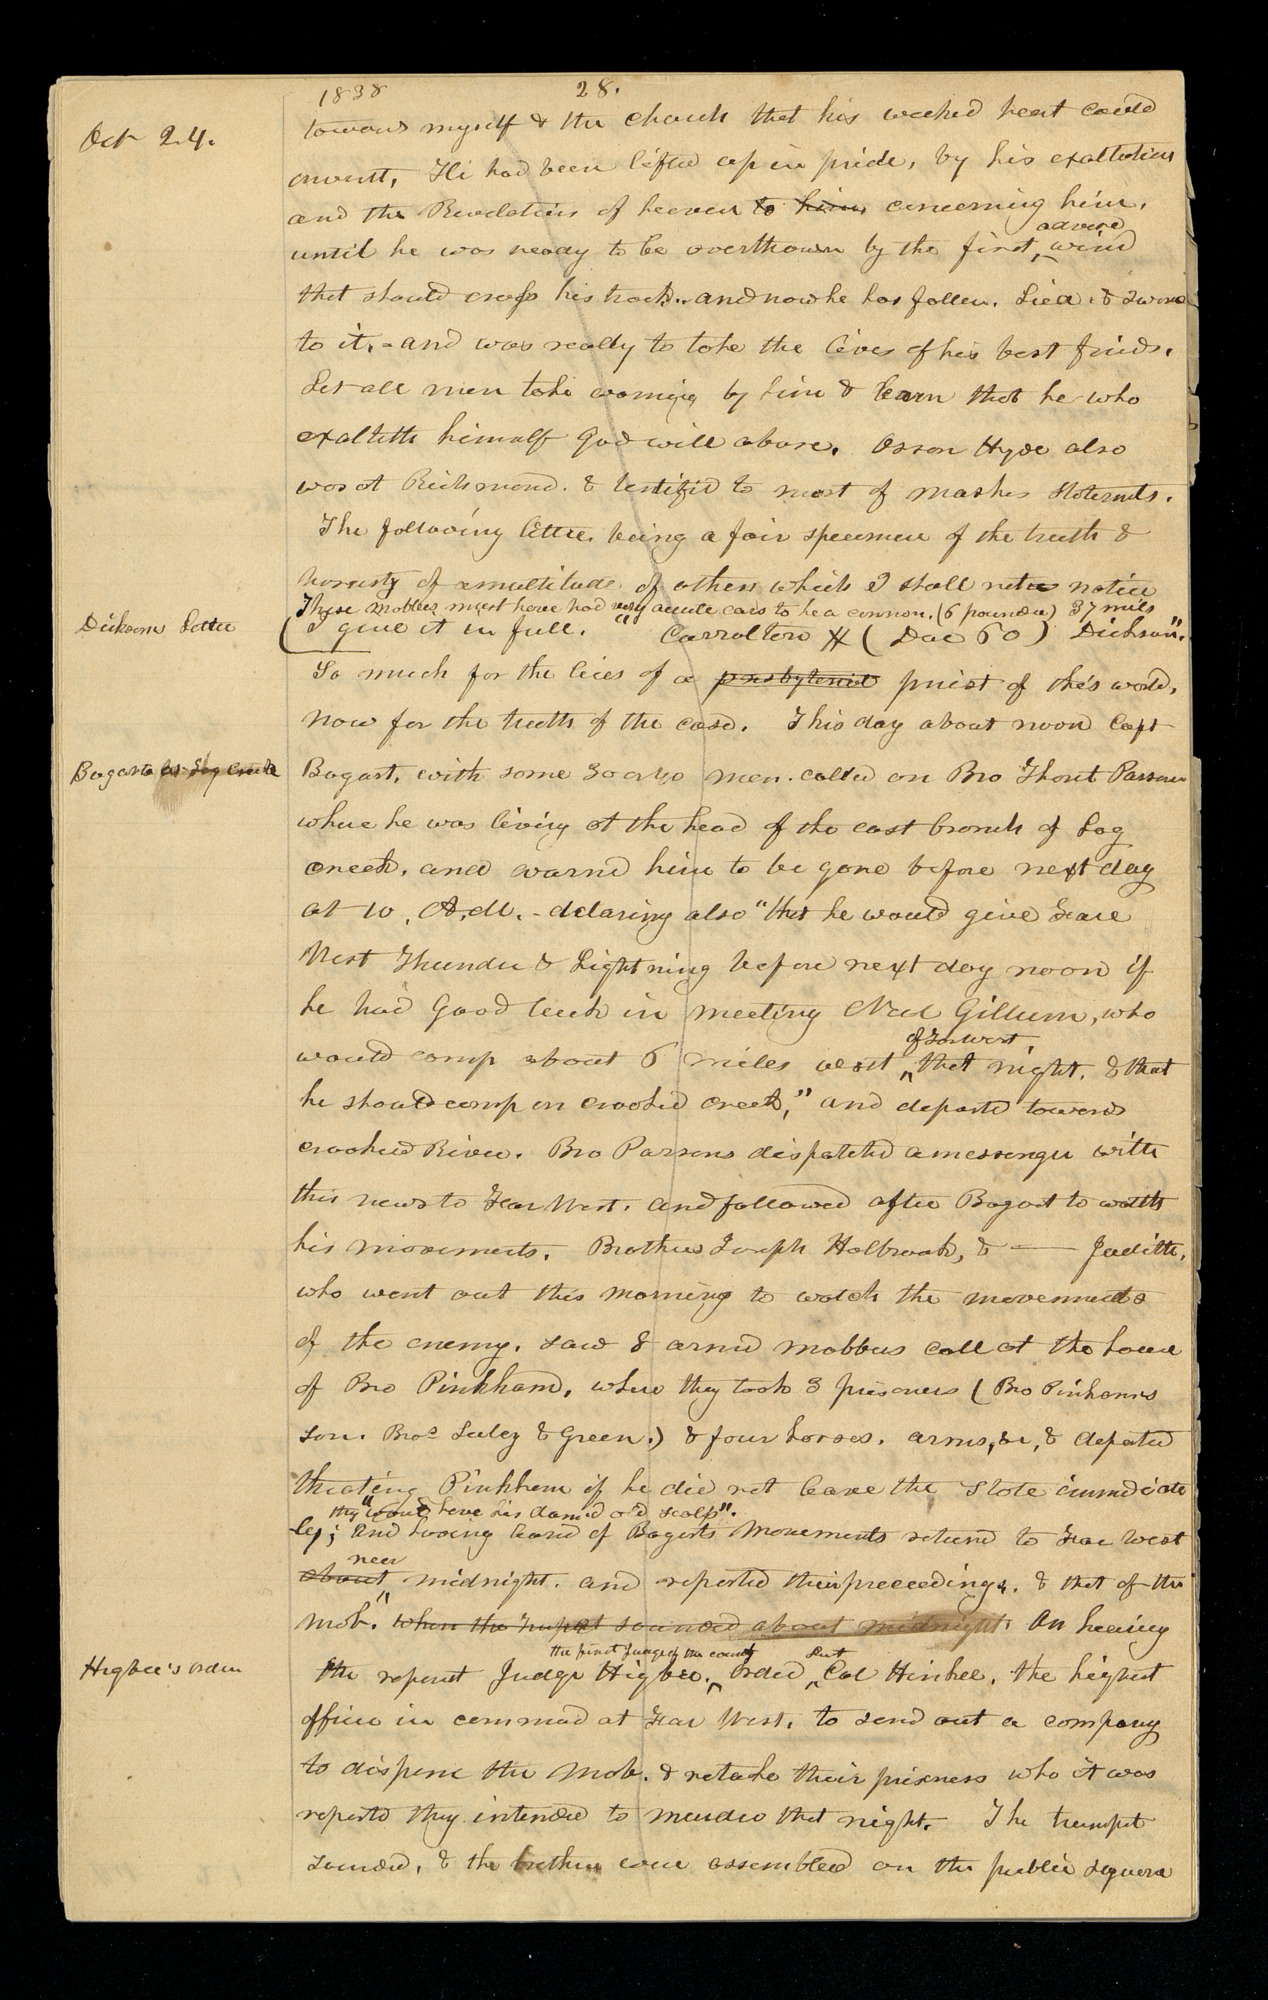 1838 28.
Oct 24.
towards myself & the church that his wicked heart could
invent, He had been lifted up in pride, by his exaltation
and the Revelations of heaven to him, concerning him,
until he was ready to be overthrown by the first adverse wind
that should cross his track. and now he has fallen. Lied & swore
to it, - and was ready to take the lives of his best friends.
Let all men take warning by him & learn that he who
exalteth himself God will abase. Orson Hyde also
was at Richmond. & testified to most of Mashes statements.
The following letter. being a fair specimen of the truth &
honesty of a multitude of others which I shall notice
These Mobbers must have had very accute ears to hea a cannon. (6 pounder) 37 mils
Dicksons Letter
(I give it in full. " Carrolton # (Doc 60) Dickson".
So much for the lies of a presbyterial priest of this world,
now for the truth of the case. This day about noon Capt
Bogarts at Log Creek
Bogart, with some 30 or 40 men. called on Bro Thorit Parsons
where he was living at the head of the east branch of Log
creek. and warned him to be gone before next day
at 10, A.M. - declaring also "that he would give Farr
West Thunder & Lightning before next day noon if
he had good luck in meeting Neil Gillum, who
would camp about 6 miles west of Far West that night. & that
he should camp on crooked creek," and departed towards
crooked River. Bro Parsons dispatched a messenger with
this news to Far West. and followed after Bogart to watch
his movements. Brothers Joseph Holbrook, & — Judith,
who went out this morning to watch the movements
of the enemy. saw 8 armed mobbers call at the house
of Bro Pinkham, where they took 3 prisoners (Bro Pinkhams
son. Bros Seeley & Green.) & four horses. arms, &c, & departed
threating Pinkham if he did not leave the state immediate
they "would have his damned old scalp".
ly; and having learned of Bogarts movements returned to Far West
about near midnight. and reported their proceedings. & that of the
mob. when the trumpet sounded about midnight. On hearing
the first Judge of the county Lut
Higbee's orders
the report Judge Higbee. ordered Col Hinkle, the highest
officer in command at Far West. to send out a company
to disperse the mob. & retake their prisoners who it was
reported they intended to murder that night. The trumpet
sounded, & the brethren were assembled on the public square